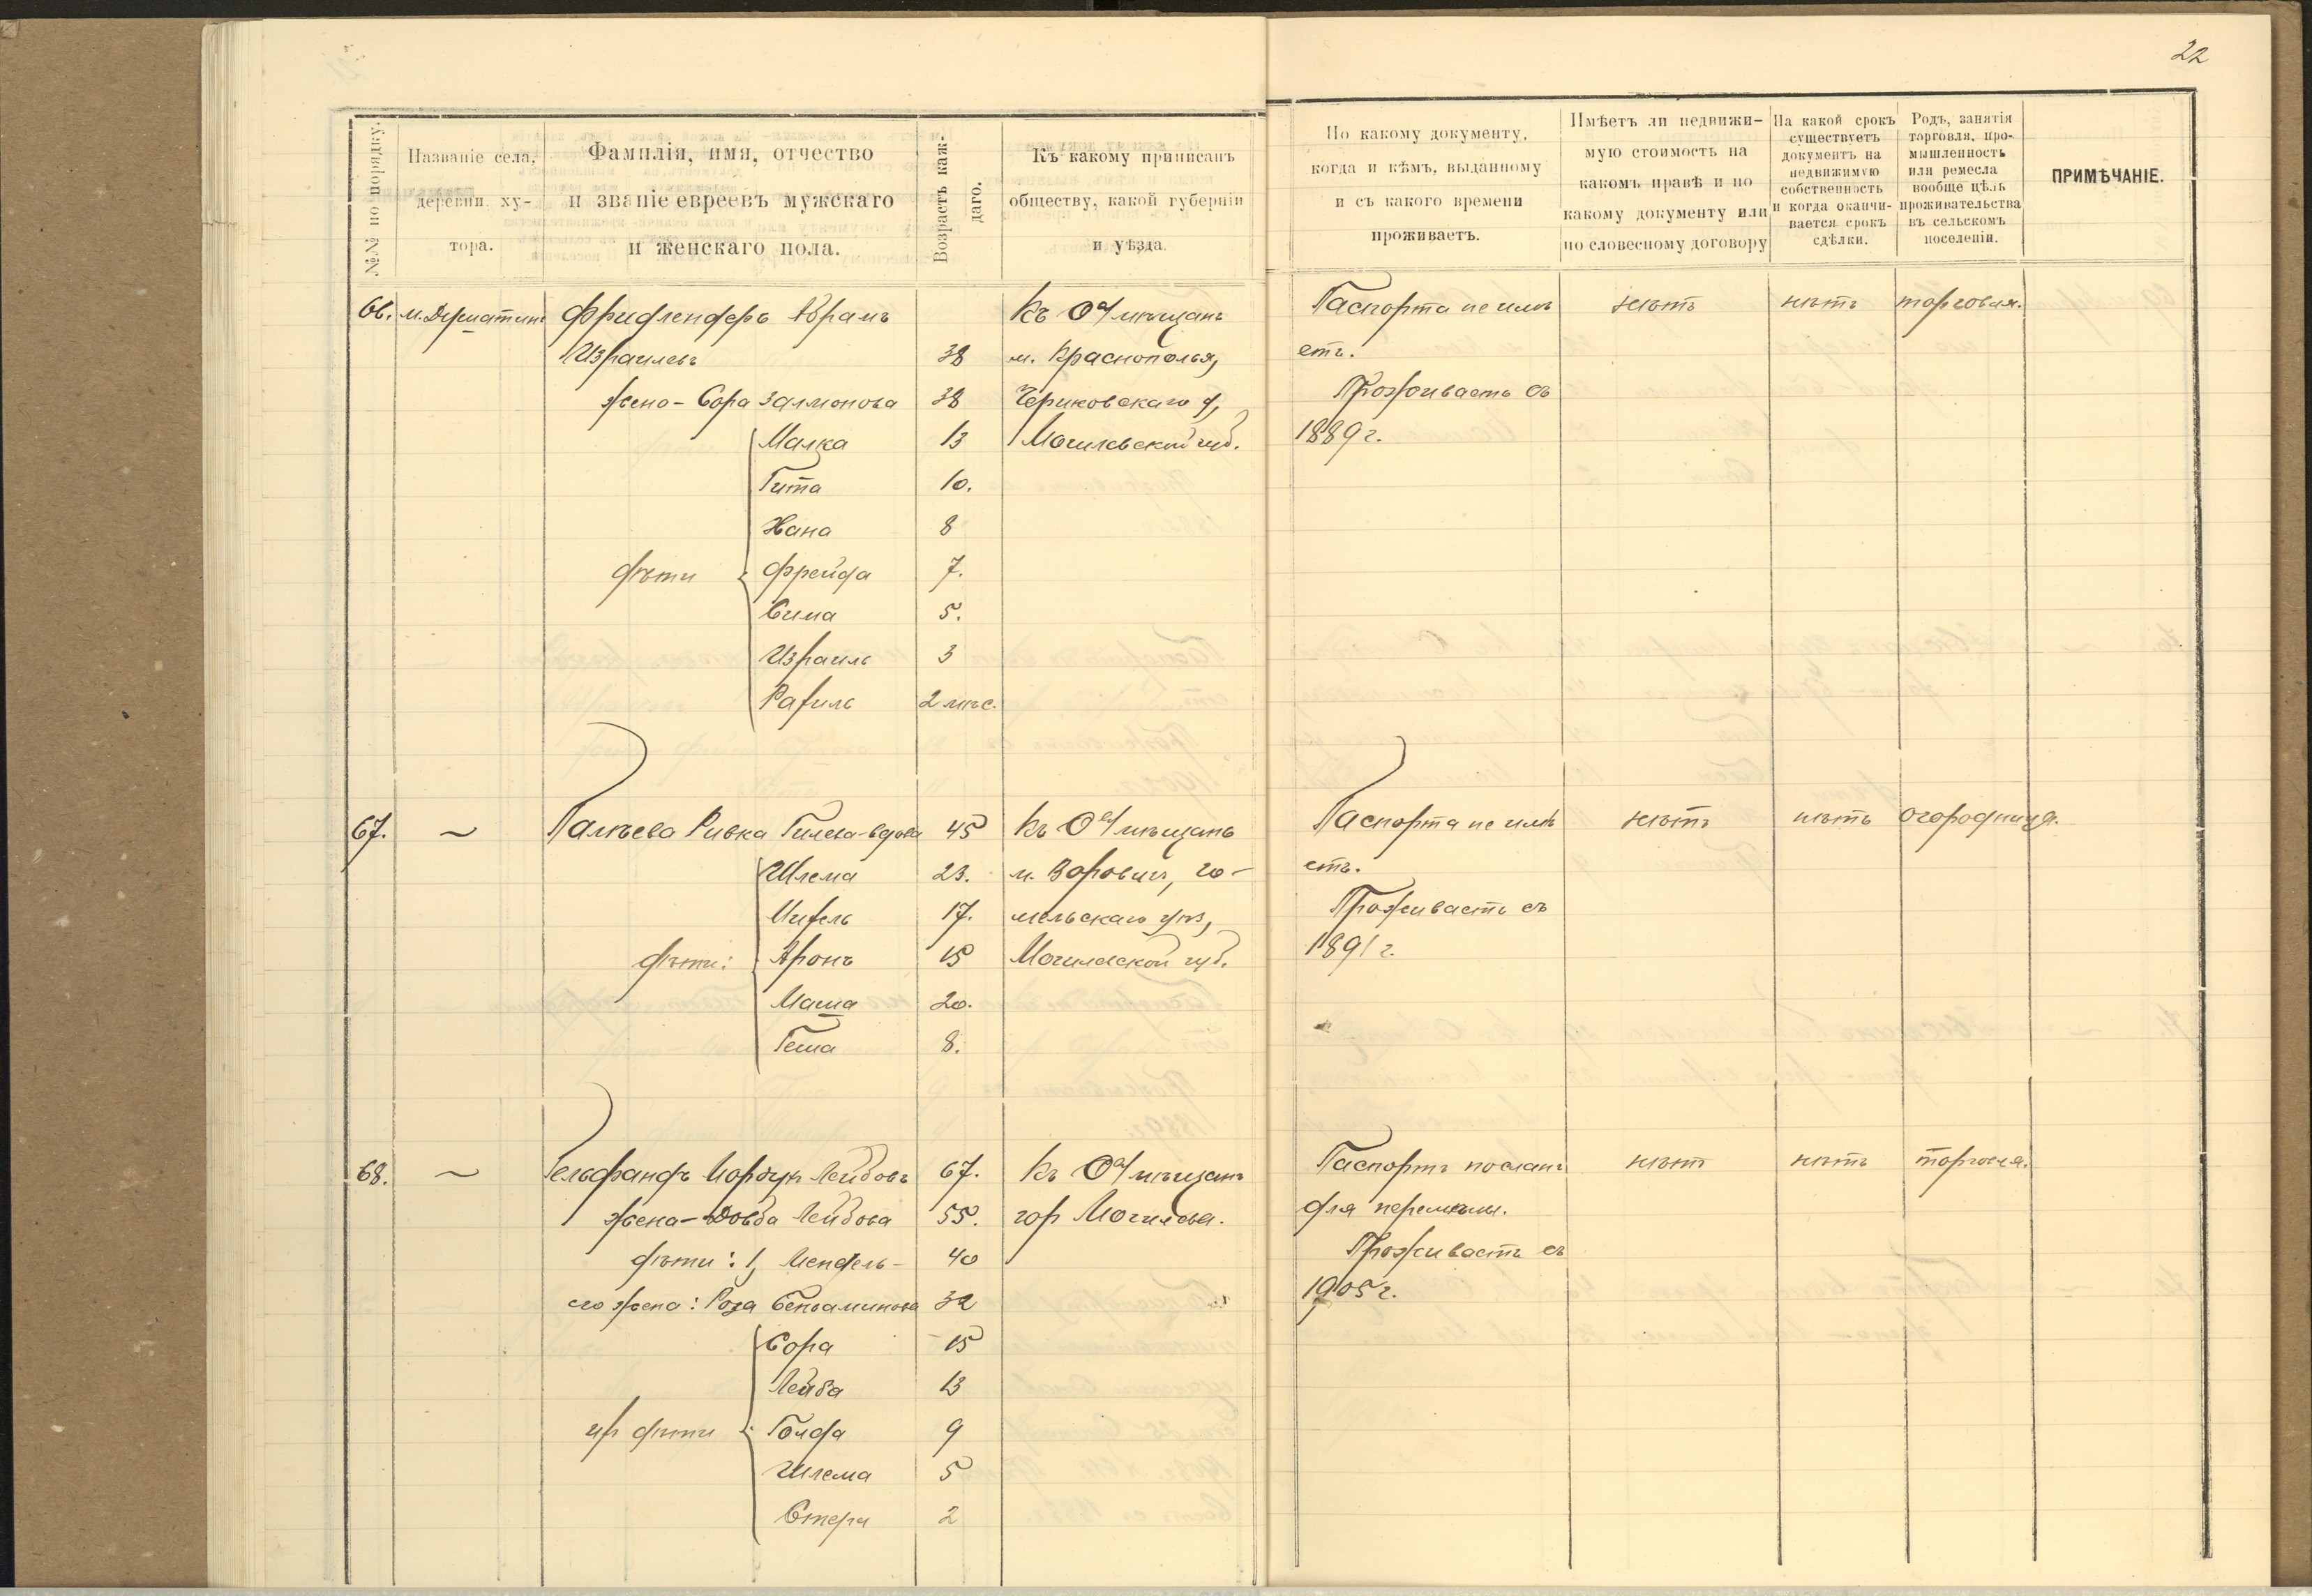 22
№№ по порядку.
Названіе села, деревни, ху-тора.
Фамилія, имя, отчество и званіе евреевъ мужскаго и женскаго пола.
Возрастъ каж-даго.
Къ какому приписанъ обществу, какой губерніи и уѣзда.
По какому документу, когда и кѣмъ, выданному и съ какого времени проживаетъ.
Имѣетъ ли недвижи-мую стоимость на какомъ правѣ и по какому документу или по словесному договору
На какой срокъ существуетъ документъ на недвижимую собственность и когда оканчи-вается срокъ сдѣлки.
Родъ, занятія торговля, про-мышленность или ремесла вообще цѣль проживательства въ сельскомъ поселеніи.
ПРИМѢЧАНІЕ.
66. м. Фридлендеръ Абрамъ Къ мѣщанъ Паспорта не имѣ нѣтъ нѣтъ торговля.
Израилевъ 38 м. Краснополья, етъ.
жена - Сора Залмонова 38 Чериковскаго у, Проживаетъ съ
Малка 13 Могилевской губ. 1889 г.
Гита 10.
Хана 8
дѣти Фрейда 7.
Сима 5.
Израиль 3
Рахиль 2 мѣс.
67. ~ Ривка вдова 45 Къ мѣщанъ Паспорта не имѣ нѣтъ нѣтъ огородница.
Шлема 23. м. го- етъ.
17. мельскаго уѣз, Проживаетъ съ
дѣти: Аронъ 15 Могилевской губ. 1891 г.
Маша 20.
Геша 8.
68. ~ Гельфандъ Мордух Лейбовъ 67. Къ мѣщанъ Паспортъ посланъ нѣтъ нѣтъ торговля.
жена - Лейбова 55. гор Могилева. для перемѣны.
дѣти: 1, Мендель - 40 Проживаетъ съ
его жена: Роза Беньаминова 32 1905 г.
Сора 15
Лейба 13
их дѣти Голда 9
Шлема 5
Стера 2